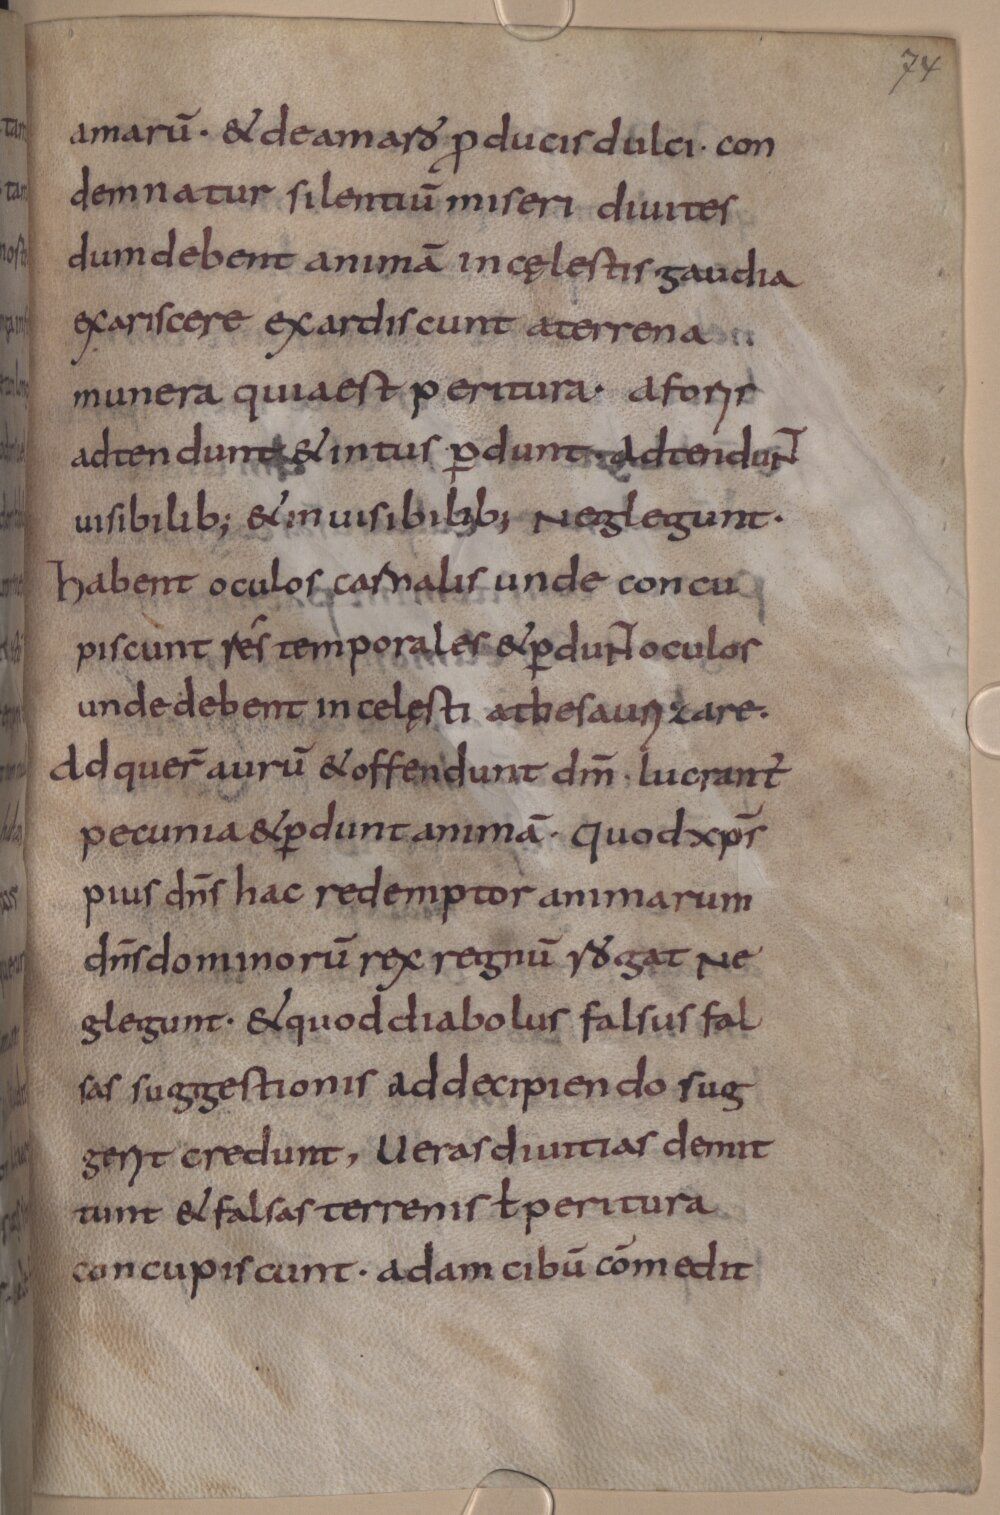 74
amarū· & deamaro ꝓducis dulci· con
demnatur silentiū miseri diuites
dum debent animā in cęlestis gaudia
exariscere exardiscunt aterrena
munera quia est peritura· aforis
adtendunt & intus ꝑdunt· Adtendunt
uisibilib; & inuisibilib; Neglegunt·
habent oculos carnalis unde concu
piscunt res temporales & ꝑdunt oculos
unde debent in celęsti athesaurizare·
Ad quer̄ aurū & offendunt dm̄· lucrant̄
pecunia & ꝑdunt animā· Quod xp̄s
pius dn̄s hac redemptor animarum
dn̄s dominorū rex regnū rogat Ne
glegunt· & quod diabolus falsus fal
sas suggestionis ad decipiendo sug
gerit credunt, Ueras diuitias demit
tunt & falsas terrenis ł peritura
concupiscunt· adam cibū cōmedit